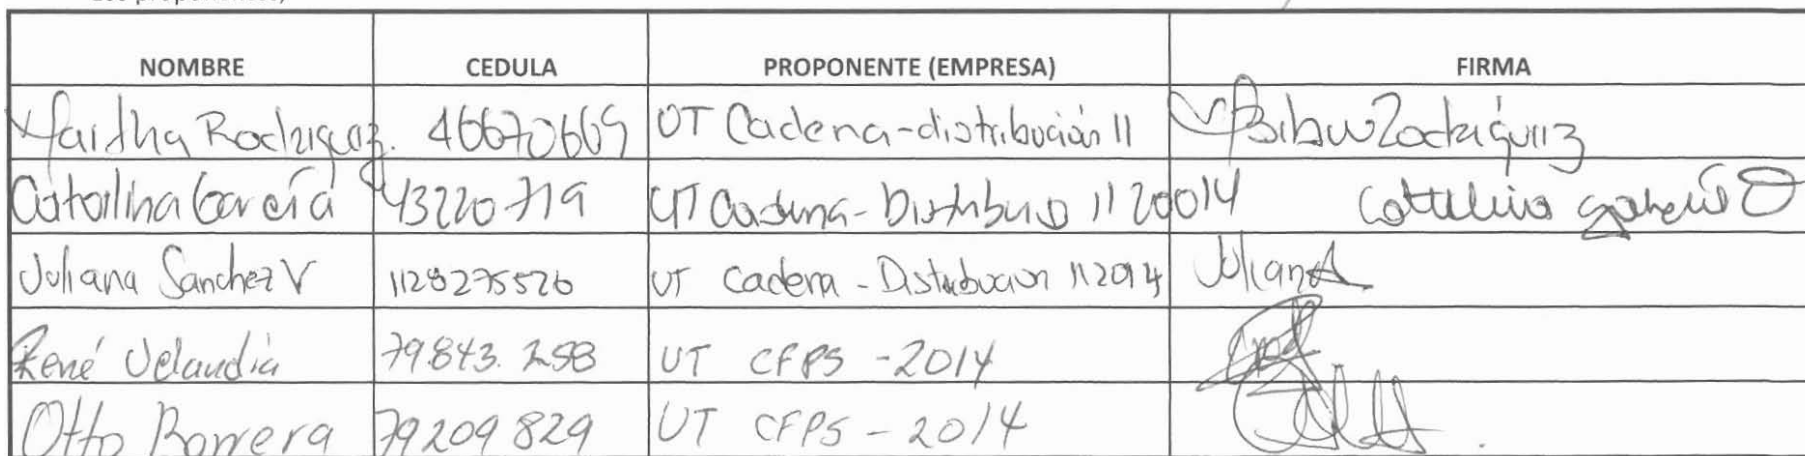 Los proponentes,
NOMBRE CEDULA PROPONENTE (EMPRESA) FIRMA
Martha Rodriguez. 46670669 UT Cadena-distribución 11
Catalina García 43220719 UT Cadena-Distribuis 11 20014 Catalina García
Juliana Sanchez V 1128275526 UT Cadena - Distribucion 112014 Juliana
René Velandia 79.843.258 UT CFPS -2014
Otto Borrera 79209829 UT CFPS - 2014